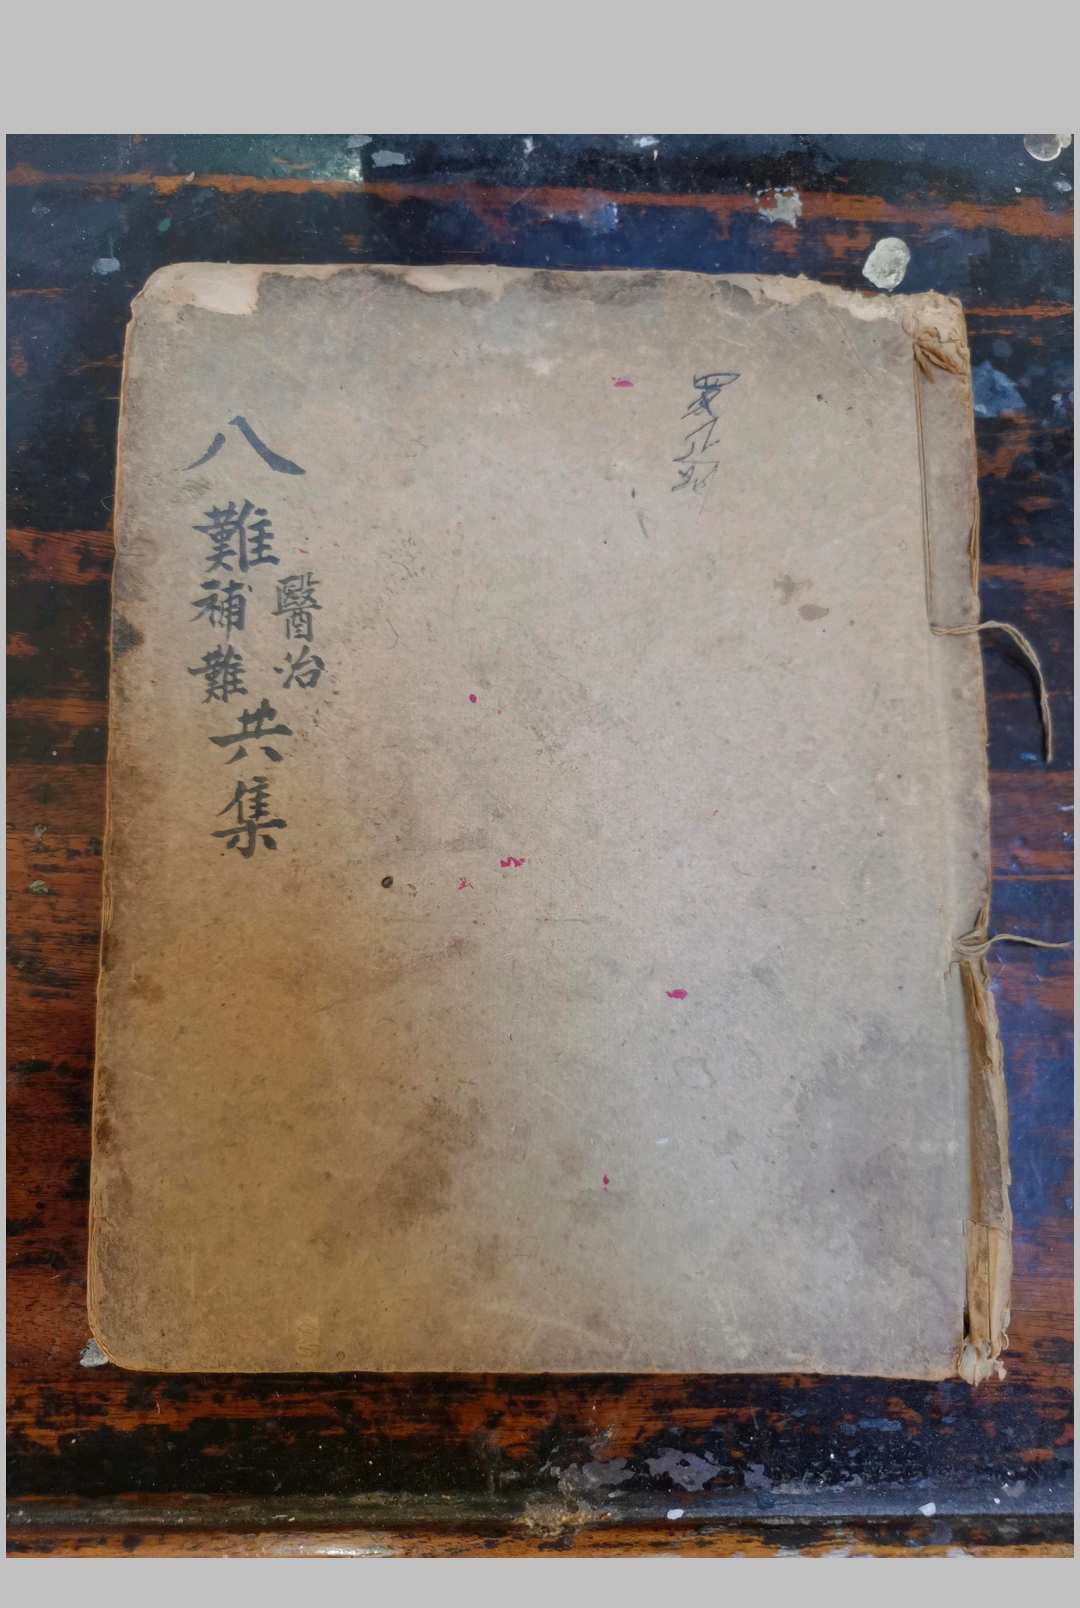 八難
醫治
補難
共集